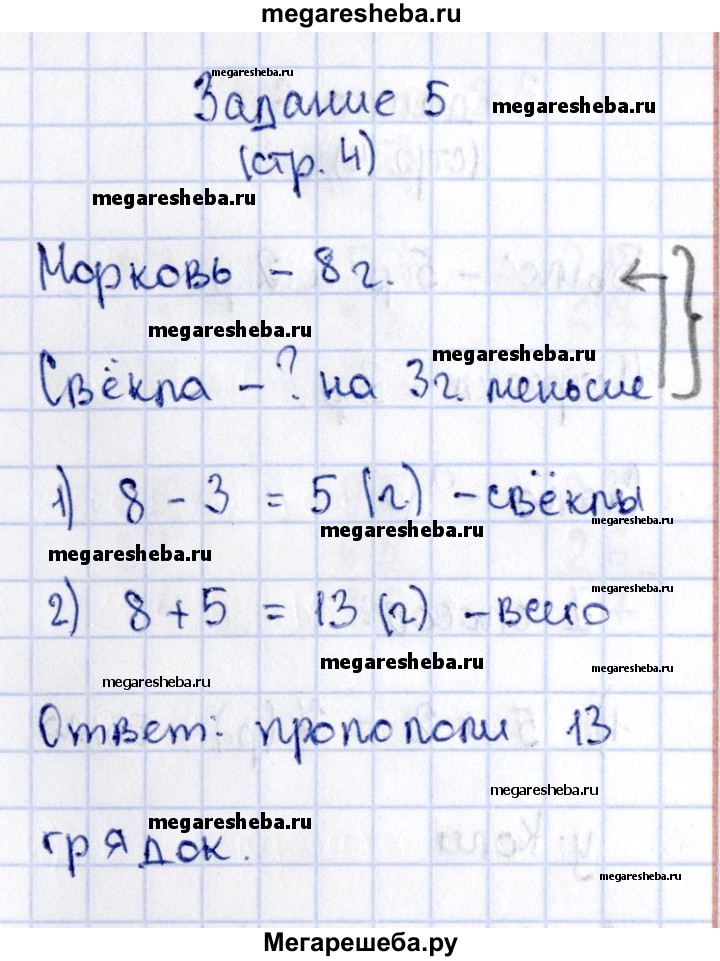 megaresheba.ru
megaresheba.ru
Задание 5
megaresheba.ru
(стр. 4)
megaresheba.ru
Морковь – 8 г.
megaresheba.ru
megaresheba.ru
Свёкла – ? на 3 г. меньше
1) 8 – 3 = 5 (г.) – свёклы
megaresheba.ru
megaresheba.ru
megaresheba.ru
megaresheba.ru
2) 8 + 5 = 13 (г) – всего
megaresheba.ru
megaresheba.ru
megaresheba.ru
Ответ: пропололи 13
megaresheba.ru
megaresheba.ru
грядок.
megaresheba.ru
Мегарешеба.ру